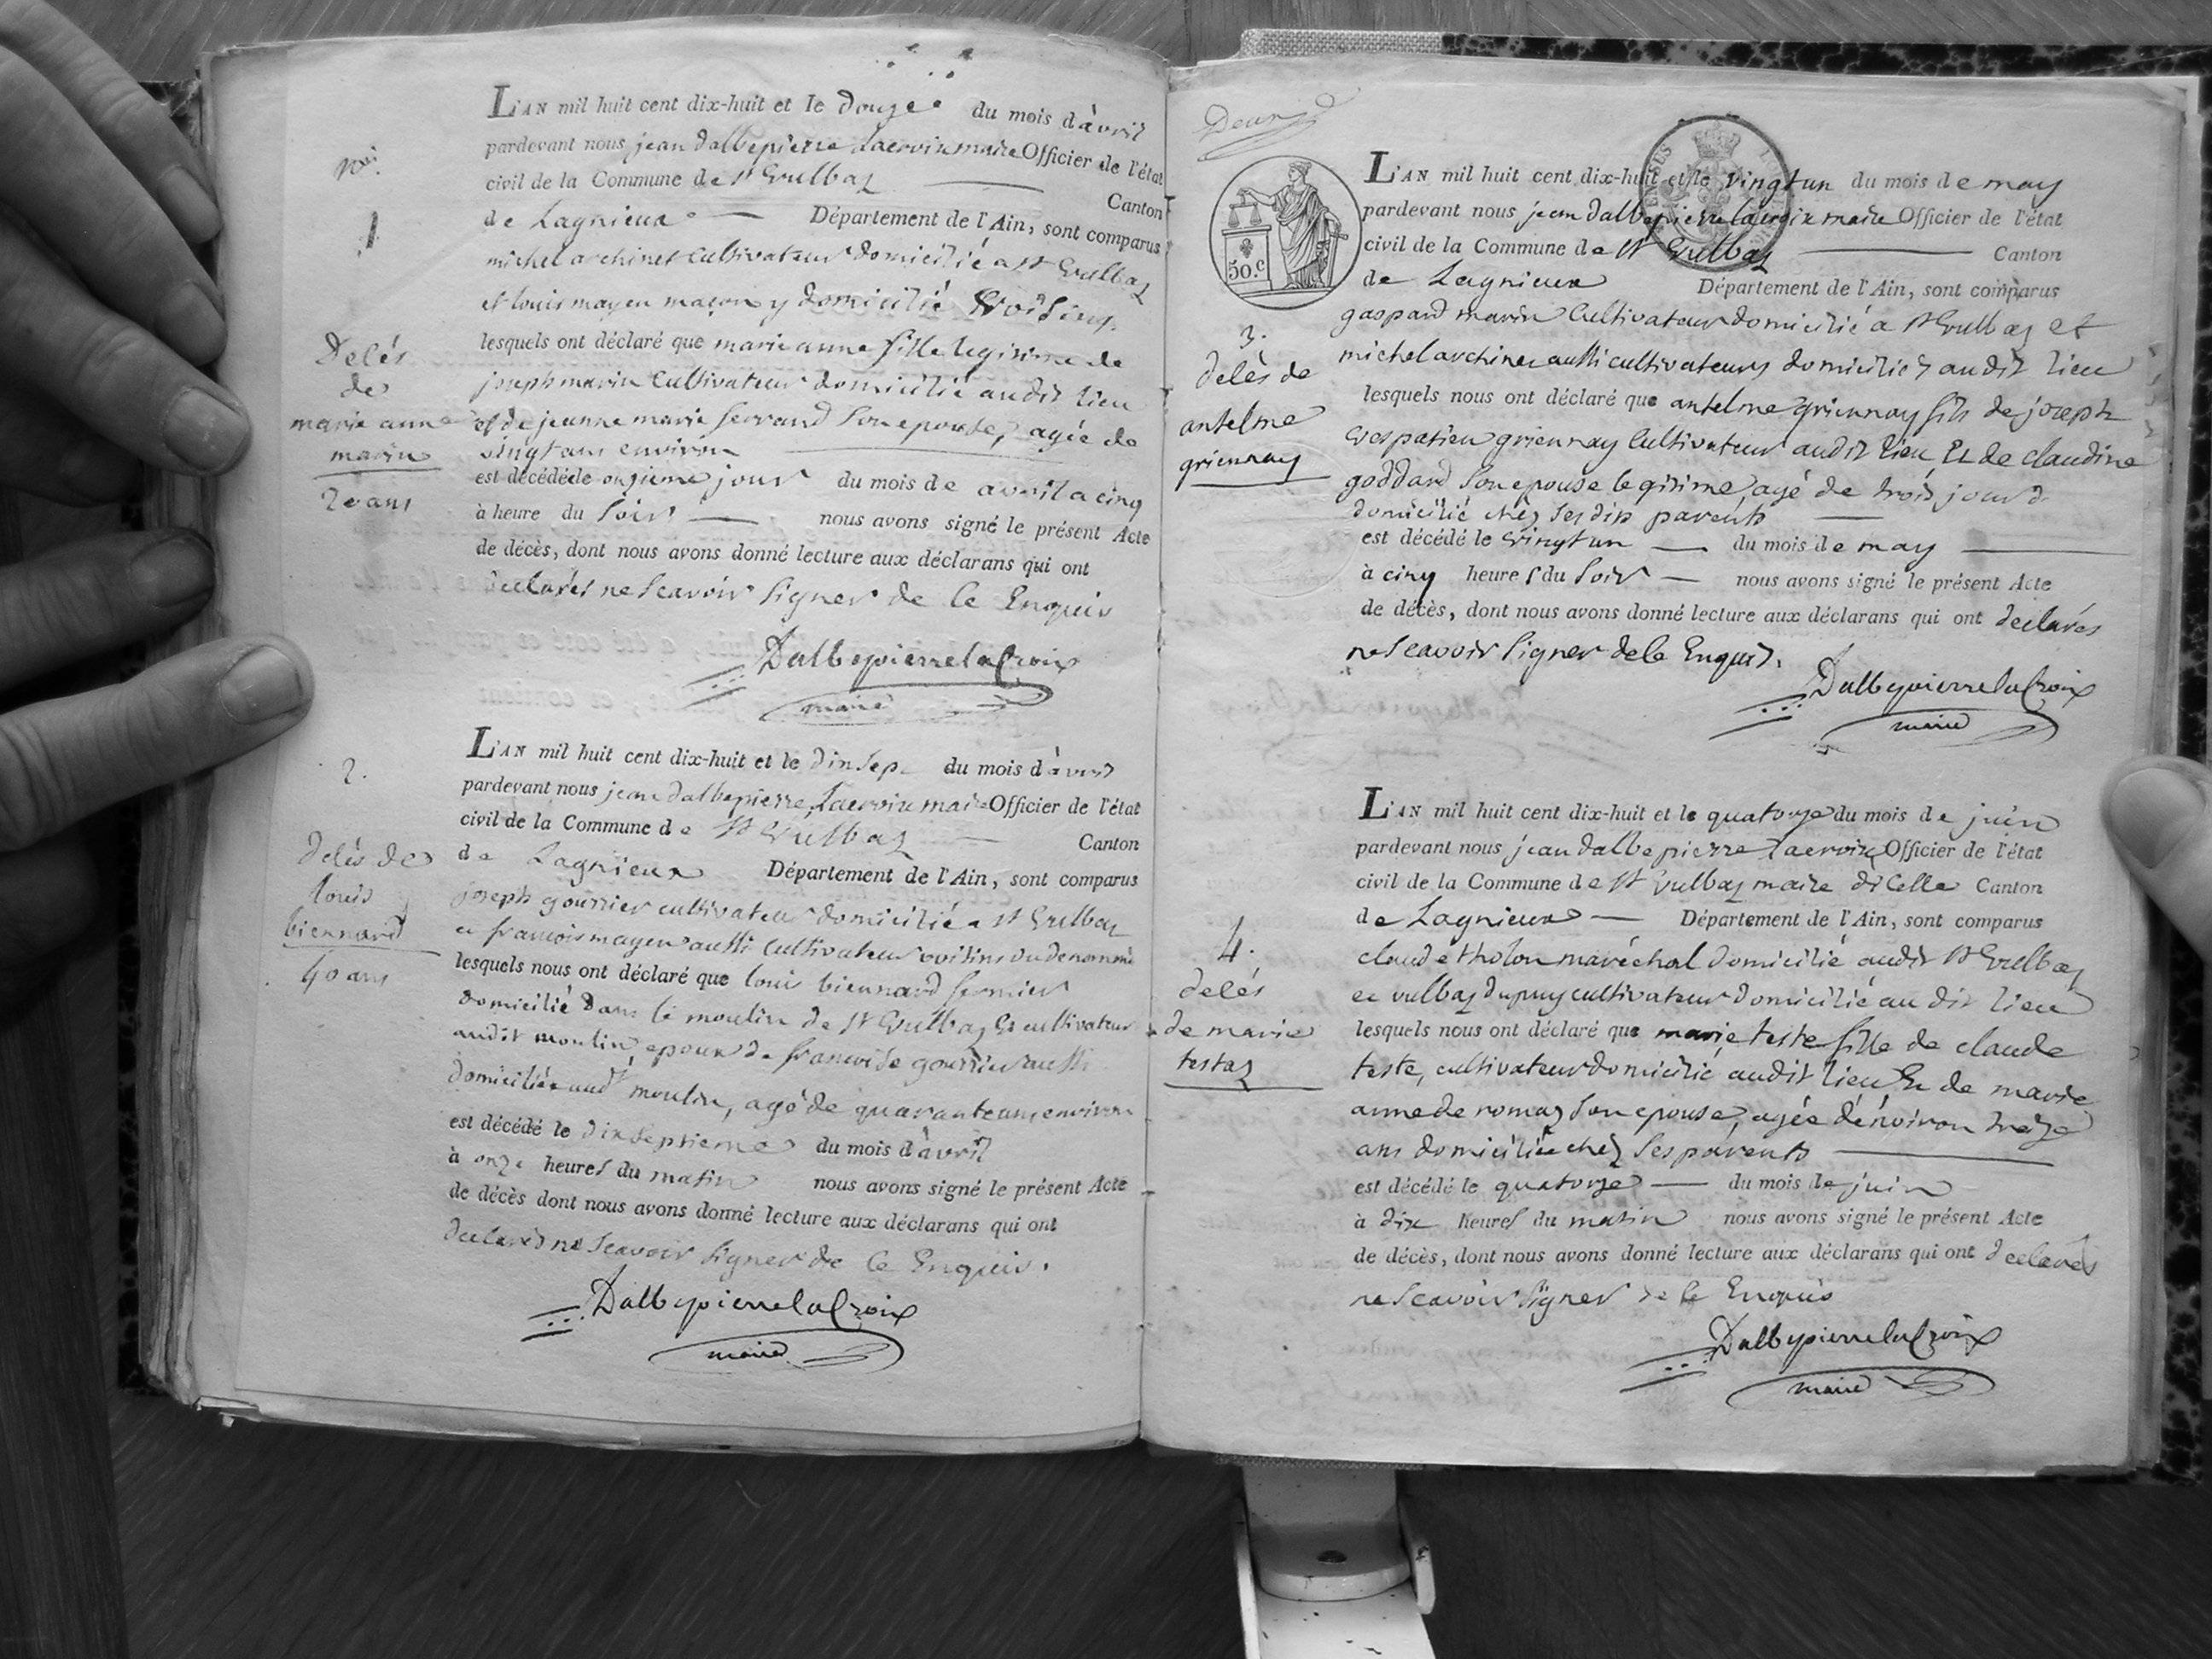 no.
1
Delés
de
marie anne
marin
20 ans
L'AN mil huit cent dix-huit et le douze du mois d'avril
pardevant nous jean dalbepierre lacroix maire Officier de l'état
civil de la Commune de st Vulbaz Canton
de Lagnieux Département de l'Ain, sont comparus
michel archinet cultivateur domicilié a st Vulbaz
et louis mayeu maçon y domicilié voisins
lesquels ont déclaré que marie anne fille legitime de
joseph marin cultivateur domicilié audit lieu
et de jeanne marie ferrand son epouse, agée de
vingt ans environ
est décédé le onzieme jour du mois de avril a cinq
à heure du soir nous avons signé le présent Acte
de décès, dont nous avons donné lecture aux déclarans qui ont
declarés ne scavoir signer de ce Enquis
Dalbepierrelacroix
maire
2.
delés de
louis
biennard
40 ans
L'AN mil huit cent dix-huit et le dix sep. du mois d'avril
pardevant nous jean dalbepierre Lacroix maire Officier de l'état
civil de la Commune de st Vulbaz Canton
de Lagnieux Département de l'Ain, sont comparus
joseph gourrier cultivateur domicilié a st Vulbaz
et francois mayeu aussi cultivateur voisins du denommé
lesquels nous ont déclaré que louis biennard fermier
domicilié dans le moulin de st Vulbaz Et cultivateur
audit moulin, epoux de francoise gourrier aussi
domiciliée audt moulin, agé de quarante ans environ
est décédé le dix septieme du mois d'avril
à onze heures du matin nous avons signé le présent Acte
de décès dont nous avons donné lecture aux déclarans qui ont
declarés ne scavoir signer de ce Enquis.
Dalbepierrelacroix
maire
Deux
50.c
3.
delès de
antelme
griennay
L'AN mil huit cent dix-huit et le vingt un du mois de may
pardevant nous jean dalbepierre lacroix maire Officier de l'état
civil de la Commune de st Vulbaz Canton
de Lagnieux Département de l'Ain, sont comparus
gaspard marin Cultivateur domicilié a st Vulbaz et
michel archinet aussi cultivateurs domiciliés audit lieu
lesquels nous ont déclaré que antelme griennay fils de joseph
vespatien griennay Cultivateur audit lieu Et de claudine
goddard son epouse legitime, agé de trois jours
domicilié chez ses dits parents
est décédé le vingt un du mois de may
à cinq heures du soir nous avons signé le présent Acte
de décès, dont nous avons donné lecture aux déclarans qui ont declarés
ne scavoir signer de ce Enquis.
Dalbepierrelacroix
maire
4.
delés
de marie
testaz
L'AN mil huit cent dix-huit et le quatorze du mois de juin
pardevant nous jean dalbepierre lacroix Officier de l'état
civil de la Commune de st Vulbaz maire di Celle Canton
de Lagnieux Département de l'Ain, sont comparus
claude tholon maréchal domicilié audit st Vulbaz
et vulbaz dupuy cultivateur domicilié au dit lieu
lesquels nous ont déclaré que marie teste fille de claude
teste, cultivateur domicilié audit lieu Et de marie
anne de romaz son epouse, agée d'énviron treize
ans domiciliée chez ses parents
est décédé le quatorze du mois de juin
à dix heures du matin nous avons signé le présent Acte
de décès, dont nous avons donné lecture aux déclarans qui ont declarés
ne scavoir signer de ce Enquis
Dalbepierrelacroix
maire